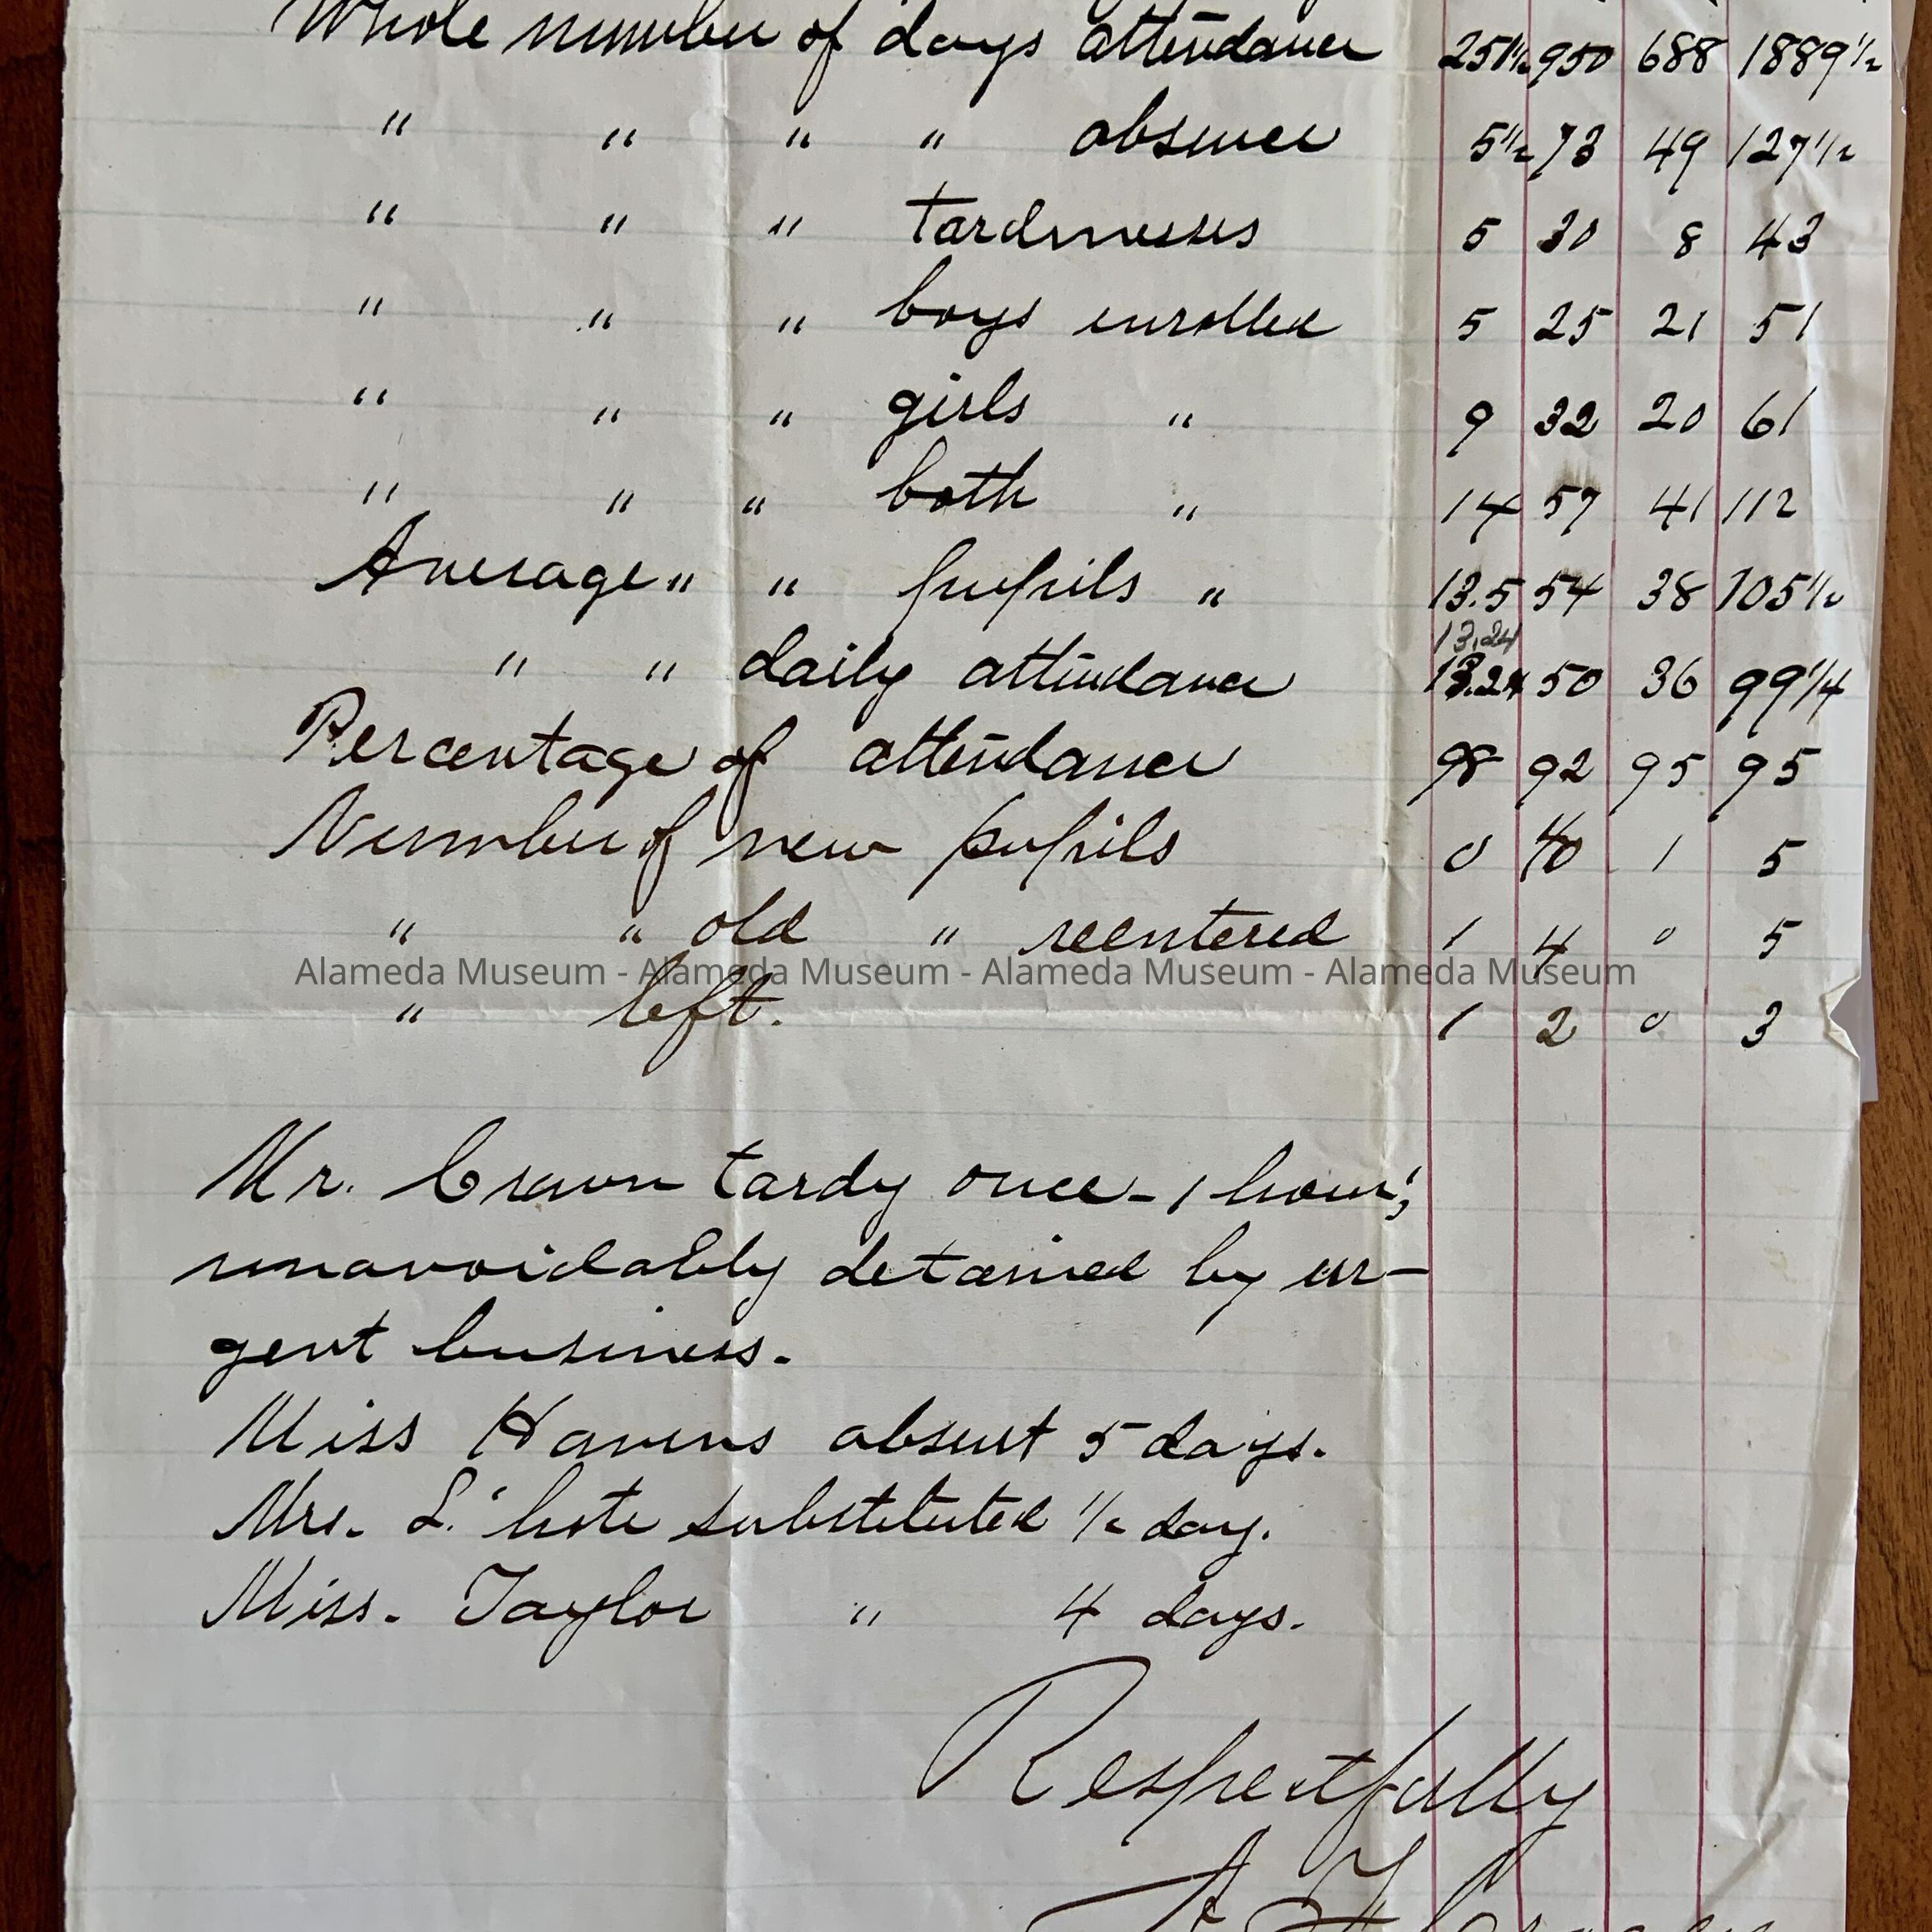 Whole number of days attendance 251½ 950 688 1889½
" " " " absence 5½ 73 49 127½
" " " tardinesses 5 30 8 43
" " " boys enrolled 5 25 21 51
" " " girls " 9 32 20 61
" " " both " 14 57 41 112
Average " " pupils " 13.5 54 38 105½
13.24
" " daily attendance 13.24 50 36 99¼
Percentage of attendance 98 92 95 95
Number of new pupils 0 1 5
" " old " reentered 1 4 0 5
Alameda Museum - Alameda Museum - Alameda Museum - Alameda Museum
" left. 1 2 0 3
Mr. Crown tardy once - 1 hour;
unavoidably detained by ur-
gent business.
Miss Havens absent 5 days.
Mrs. L'hote substituted ½ day.
Miss. Taylor " 4 days.
Respectfully